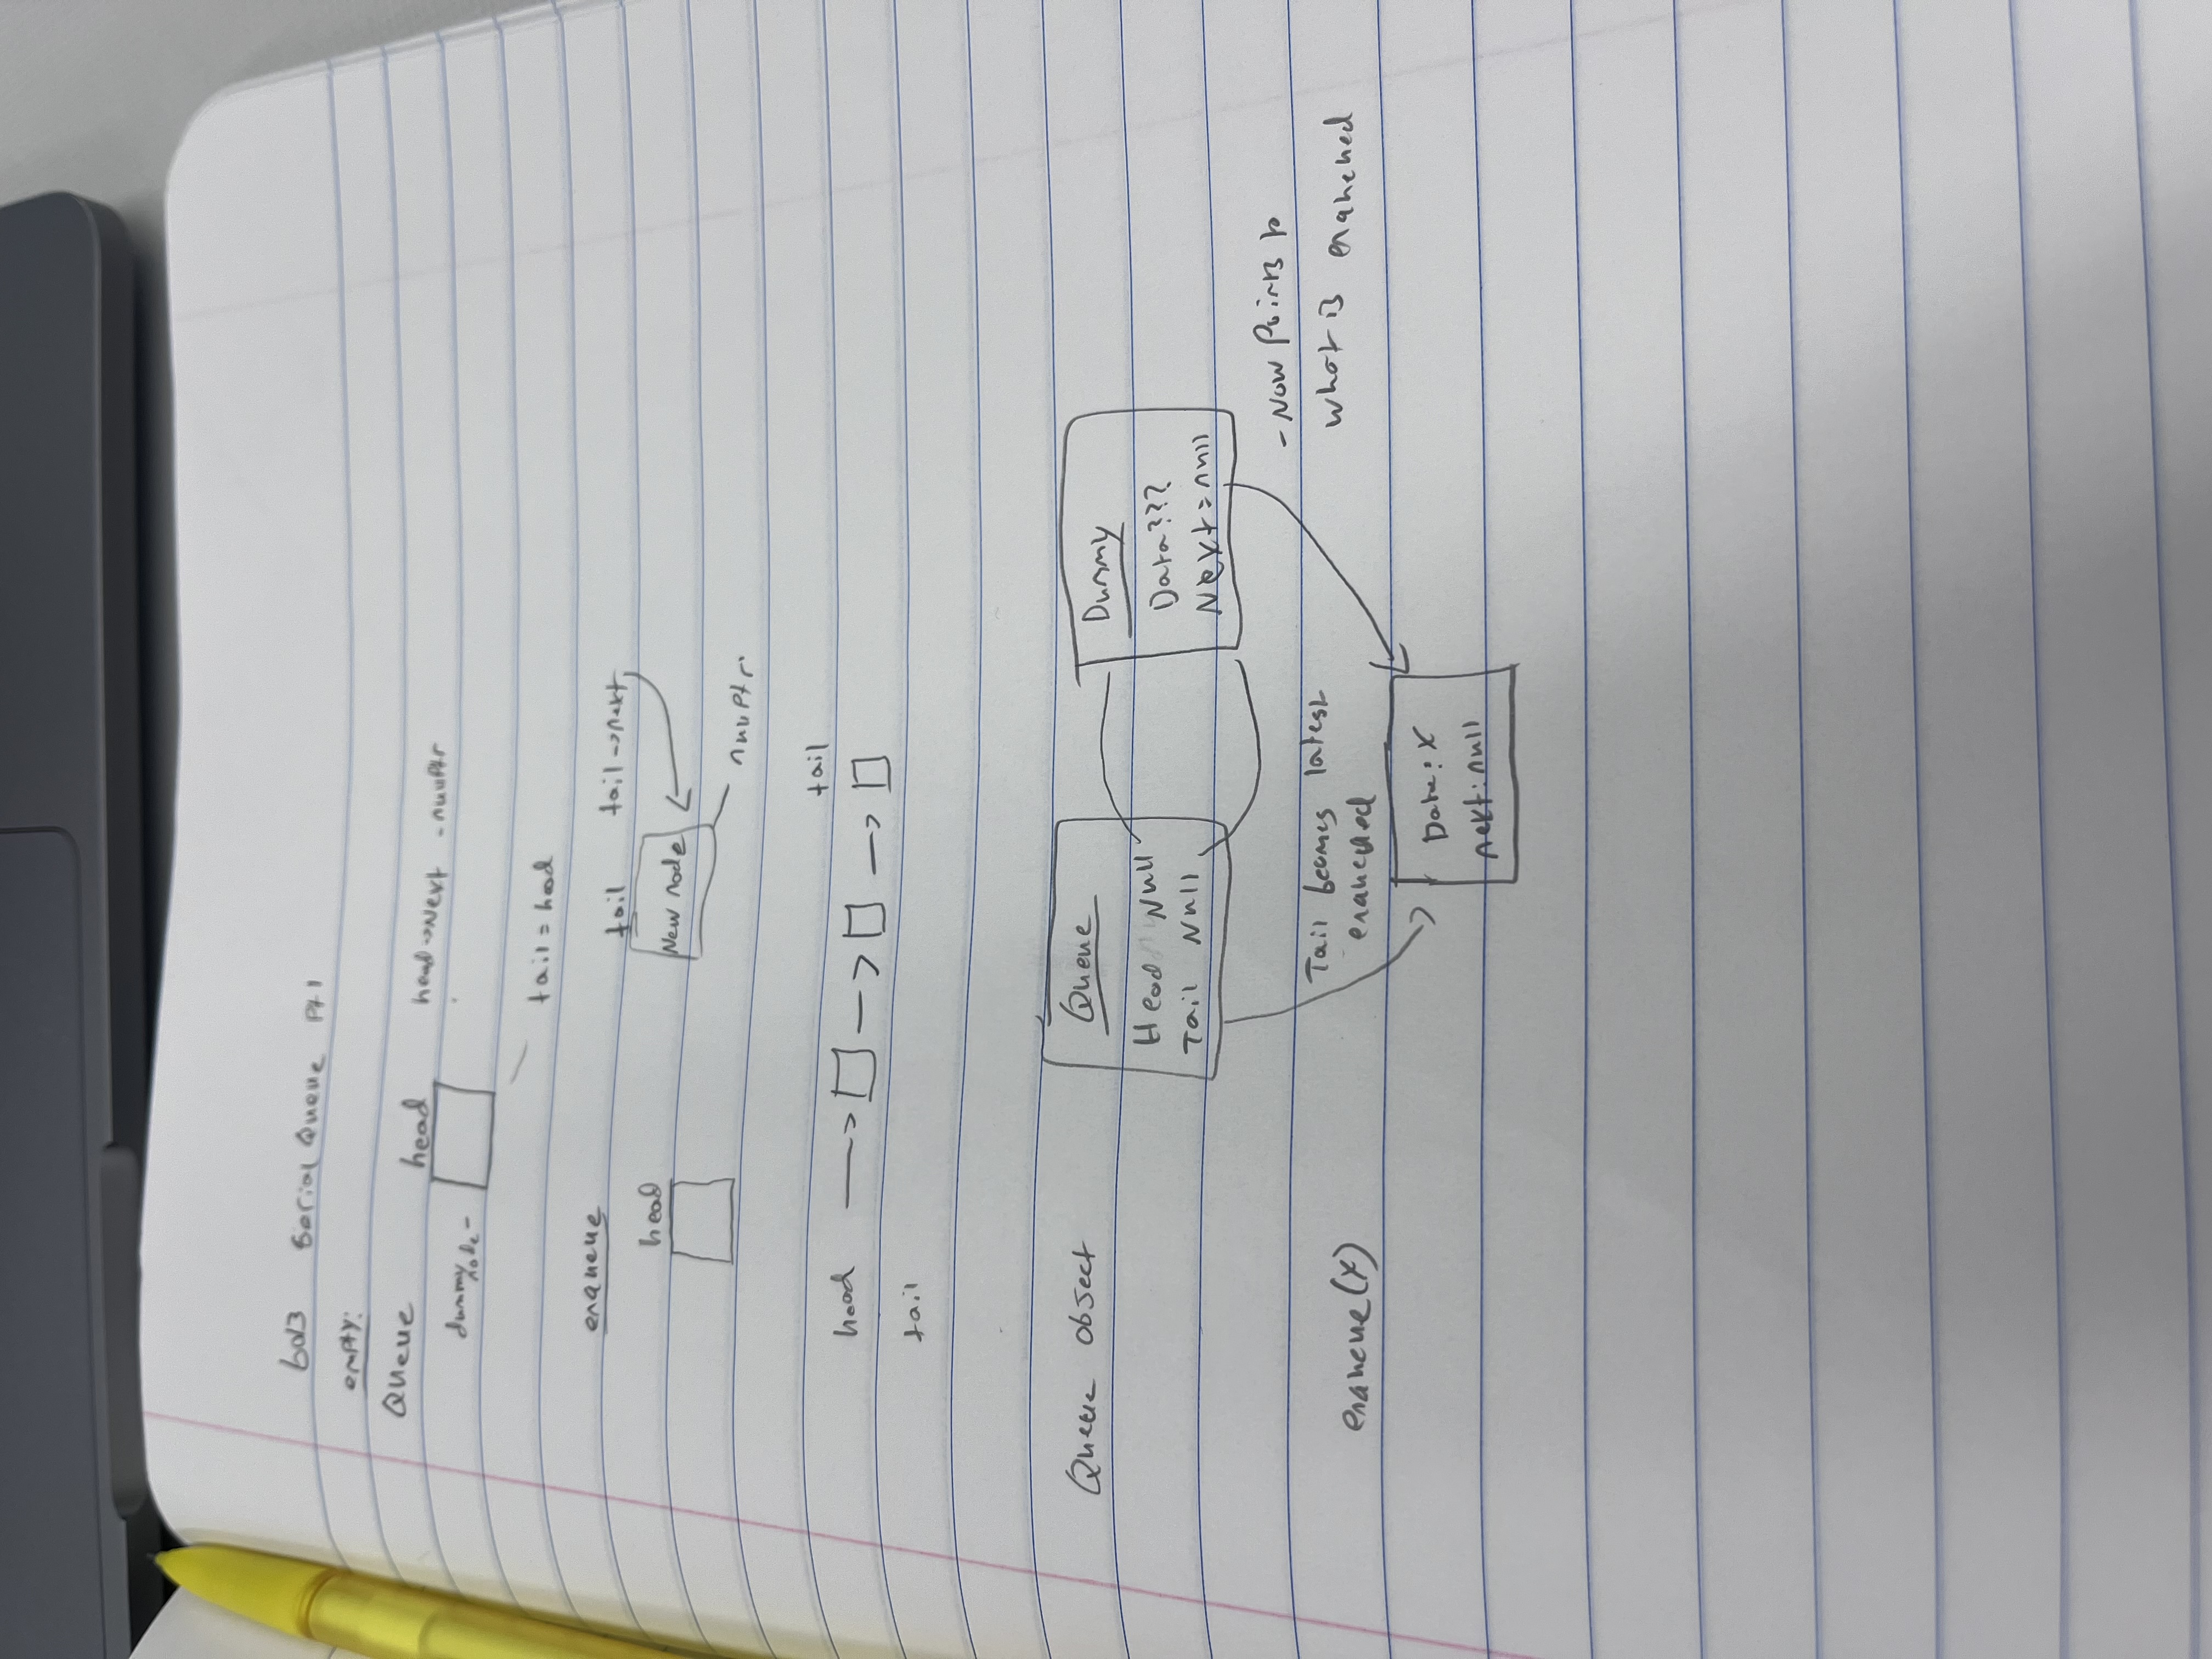 6013 Serial Queue Pt 1
empty:
Queue
head
head->Next - nullptr
dummy node -
tail = head
enqueue
tail
tail->next
head
New node
nullptr
tail
head
tail
Queue object
Queue
Head Null
Tail Null
Dummy
Data???
Next = null
- Now points to
what is enqueued
Tail becomes latest
enqueued
enqueue(x)
Data: x
next: null